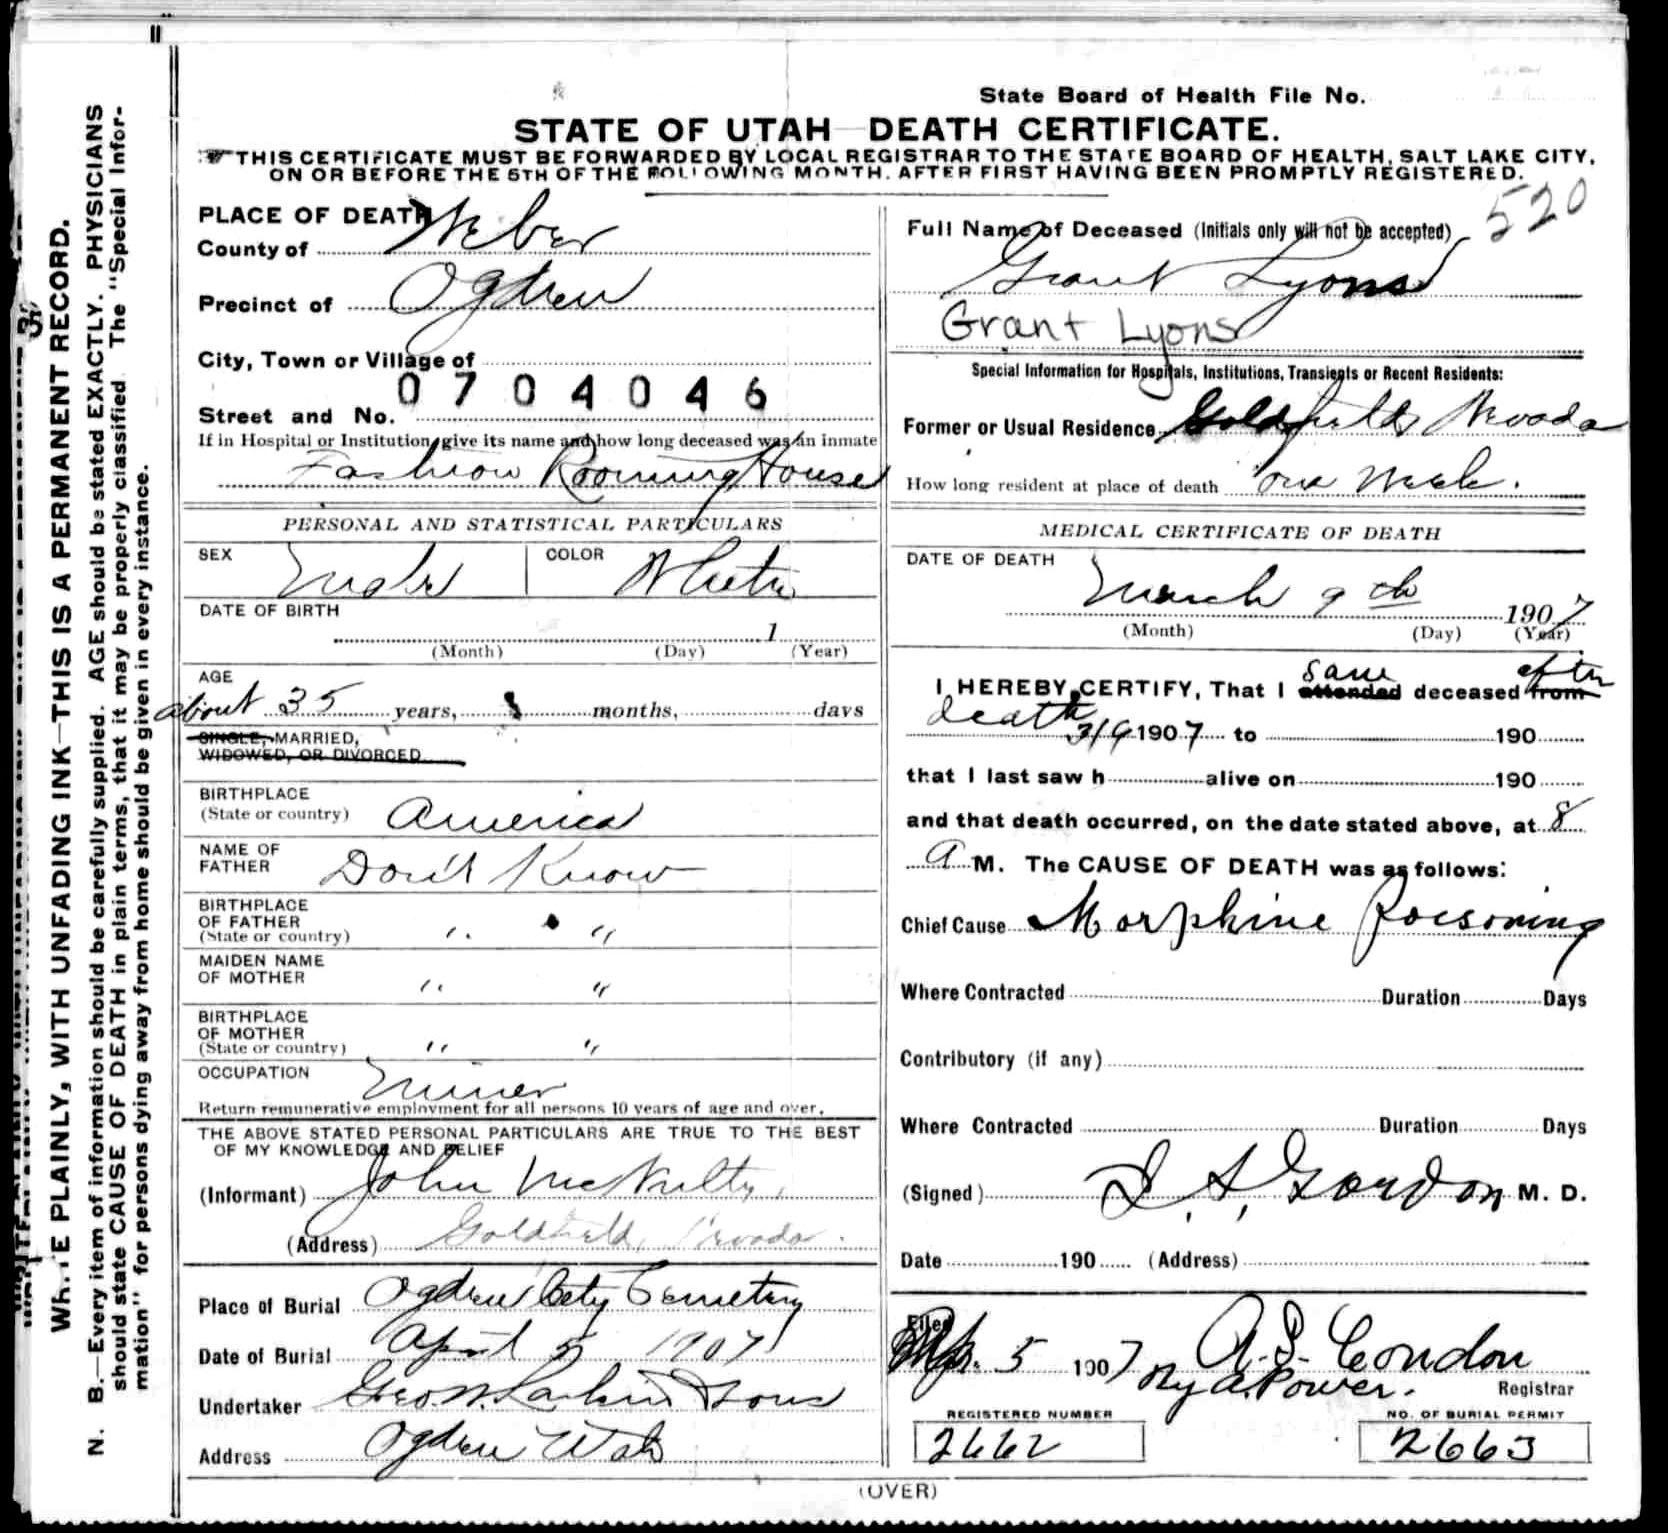 State Board of Health File No.
STATE OF UTAH—DEATH CERTIFICATE.
THIS CERTIFICATE MUST BE FORWARDED BY LOCAL REGISTRAR TO THE STATE BOARD OF HEALTH, SALT LAKE CITY,
ON OR BEFORE THE 5TH OF THE FOLLOWING MONTH, AFTER FIRST HAVING BEEN PROMPTLY REGISTERED.
520
PLACE OF DEATH
County of Weber
Precinct of Ogden
City, Town or Village of
0704046
Street and No.
If in Hospital or Institution, give its name and how long deceased was an inmate
Fashion Rooming House
PERSONAL AND STATISTICAL PARTICULARS
SEX Male COLOR White
DATE OF BIRTH
1
(Month) (Day) (Year)
AGE
about 35 years, months, days
SINGLE, MARRIED,
WIDOWED, OR DIVORCED
BIRTHPLACE
(State or country) America
NAME OF
FATHER Don't Know
BIRTHPLACE
OF FATHER
(State or country) " "
MAIDEN NAME
OF MOTHER " "
BIRTHPLACE
OF MOTHER
(State or country) " "
OCCUPATION Miner
Return remunerative employment for all persons 10 years of age and over.
THE ABOVE STATED PERSONAL PARTICULARS ARE TRUE TO THE BEST
OF MY KNOWLEDGE AND BELIEF
(Informant) John McNulty,
(Address) Goldfield, Nevada.
Place of Burial Ogden City Cemetery
Date of Burial April 5 1907
Undertaker Geo. W. Larkin & Sons
Address Ogden Utah
Full Name of Deceased (Initials only will not be accepted)
Grant Lyons
Grant Lyons
Special Information for Hospitals, Institutions, Transients or Recent Residents:
Former or Usual Residence Goldfields Nevada
How long resident at place of death one week.
MEDICAL CERTIFICATE OF DEATH
DATE OF DEATH
March 9th 1907
(Month) (Day) (Year)
saw after
I HEREBY CERTIFY, That I attended deceased from
death 3/9 1907 to 190
that I last saw h alive on 190
and that death occurred, on the date stated above, at 8
A M. The CAUSE OF DEATH was as follows:
Chief Cause Morphine Poisoning
Where Contracted Duration Days
Contributory (if any)
Where Contracted Duration Days
(Signed) Gordon M. D.
Date 190 (Address)
Filed Ap. 5 1907 A.S. Condon
By A. Power. Registrar
REGISTERED NUMBER NO. OF BURIAL PERMIT
2662 2663
(OVER)
WRITE PLAINLY, WITH UNFADING INK—THIS IS A PERMANENT RECORD.
N. B.—Every item of information should be carefully supplied. AGE should be stated EXACTLY. PHYSICIANS
should state CAUSE OF DEATH in plain terms, that it may be properly classified. The "Special Infor-
mation" for persons dying away from home should be given in every instance.